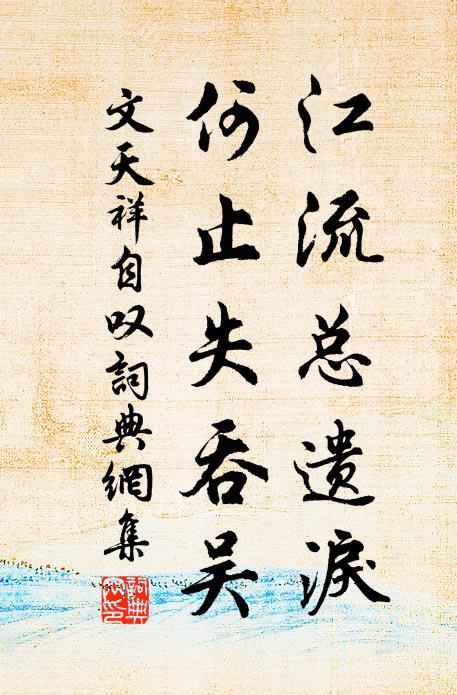 江流总遗泪
何止失吞吴
文天祥自叹詞典網集